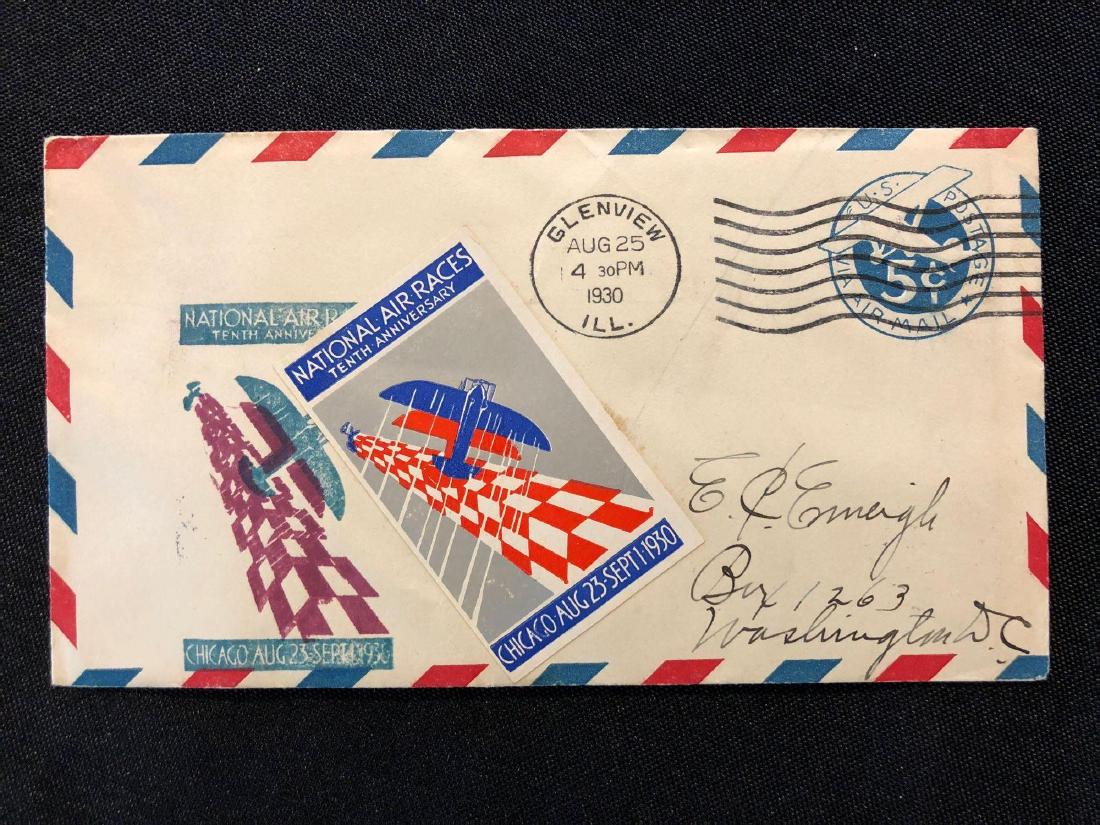 GLENVIEW
AUG 25
4 30PM
1930
ILL.
U.S. POSTAGE
5¢
VIA AIR MAIL
NATIONAL·AIR·R
TENTH ANNIVE
CHICAGO·AUG·23·SEPT·1·1930
NATIONAL·AIR·RACES
TENTH·ANNIVERSARY
CHICAGO·AUG·23·SEPT·1·1930
E. C. Emeigh
Box 1263
Washington D.C